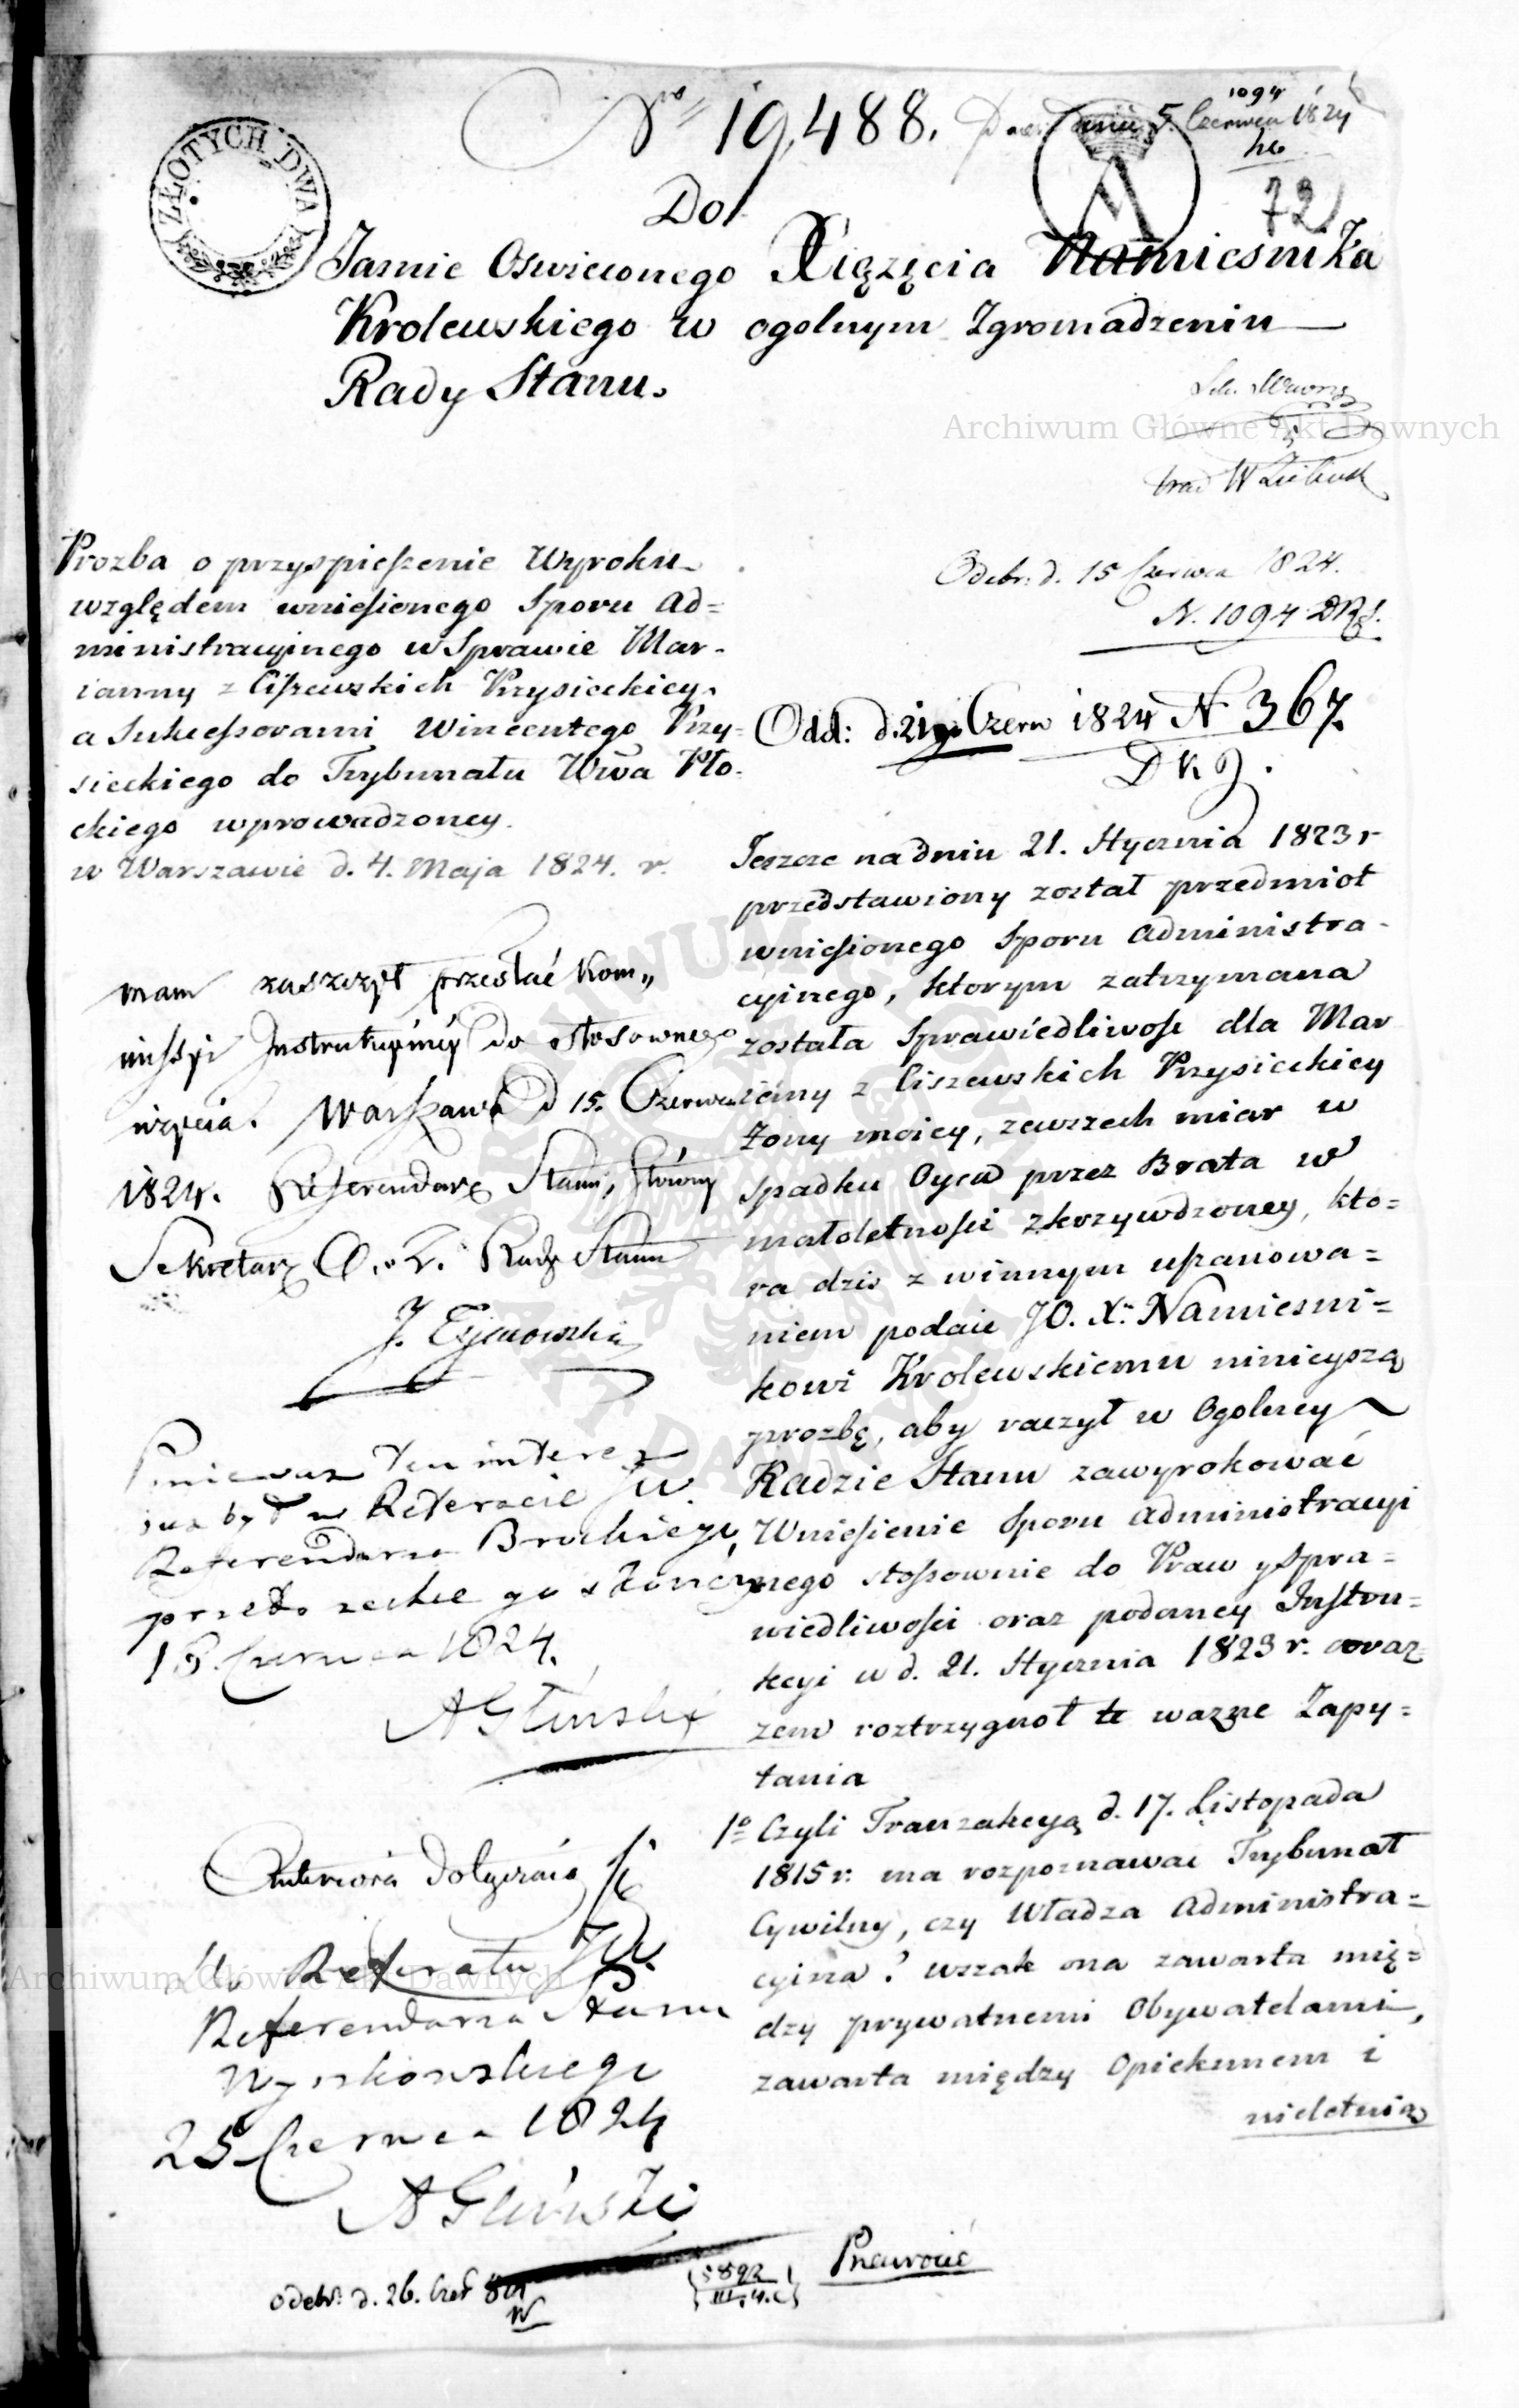 ZŁOTYCH DWA
No 19,488.
dnia 5. Czerwca 1824
1094
72
Do
Jasnie Oswieconego Xiążęcia Namiesnika
Krolewskiego w ogolnym Zgromadzeniu
Rady Stanu.
Archiwum Główne Akt Dawnych
Prozba o przyspieszenie Wyroku
względem wniesionego Sporu Ad=
ministracyinego w Sprawie Mar-
ianny z Ciszewskich Przysieckiey.
a Sukcessorami Wincentego Przy=
sieckiego do Trybunału Wwa Pło-
ckiego wprowadzoney.
w Warszawie d. 4. Maja 1824. r.
mam zaszczyt przesłać Kom„
missyi Instrukcyiney do stosownego
użycia. Warszawa d 15. Czerwca
1824. Referendarz Stanu, Główny
Sekretarz Rady Stanu
Ponieważ ten interes
iuz był w Referacie JW.
Referendarza Brockiego,
przeto zechce go skończyć
18. Czerwca 1824.
AGliński
Do Referatu JW.
Referendarza Stanu
Wyszkowskiego
25 Czerwca 1824
AGliński
odebr: d. 26. Czer 824
Odebr: d. 15 Czerwca 1824.
N. 1094 DRS.
Odd: d. 21go Czerw 1824 N 367.
D K J.
Jeszcze na dniu 21. Stycznia 1823 r
przedstawiony został przedmiot
wniesionego Sporu Administra-
cyinego, ktorym zatrzymana
została Sprawiedliwość dla Mar
ianny z Ciszewskich Przysieckiey
Zony moiey, zewszech miar w
Spadku Oyca przez Brata w
małoletnosci zkrzywdzoney, kto=
ra dzis z winnym uszanowa=
niem podaie JO. Xu Namiesni=
kowi Krolewskiemu ninieyszą
prozbę, aby raczył w Ogolney
Radzie Stanu zawyrokować
Wniesienie Sporu Administracyi
nego stossownie do Praw y Spra=
wiedliwosci oraz podaney Instru=
kcyi w d. 21. Stycznia 1823 r. a oraz
zem roztrzygnoł te wazne Zapy=
tania
1o Czyli Tranzakcyą d. 17. Listopada
1815 r. ma rozpoznawac Trybunał
Cywilny, czy Władza Administra=
cyina? wszak ona zawarta mię=
dzy prywatnemi Obywatelami,
zawarta między Opiekunem i
nieletnią
5892
III.4.c
Przewrocić
Archiwum Główne Akt Dawnych
ARCHIWUM GŁÓWNE AKT DAWNYCH